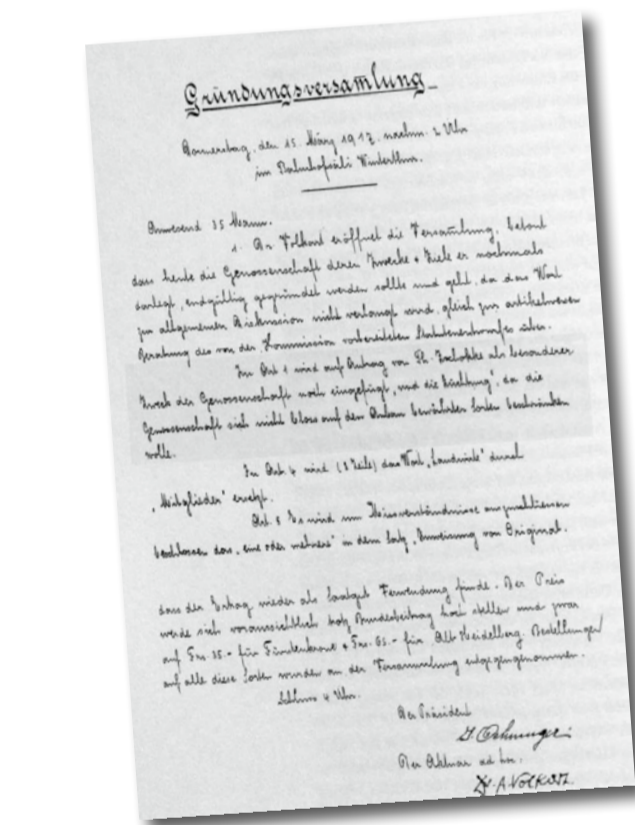 Gründungsversamlung
Donnerstag, den 15. März 1917. nachm. 2 Uhr
im Bahnhofsäli Winterthur.
Anwesend 35 Mann.
1. Dr. Volkart eröffnet die Versammlung, betont
dass heute die Genossenschaft deren Zwecke & Ziele er nochmals
darlegt, endgültig gegründet werden sollte und geht, da das Wort
zur allgemeinen Diskussion nicht verlangt wird, gleich zur artikelweisen
Beratung des von der Kommission vorbereiteten Statutenentwurfes über.
Zu Art. 1 wird auf Antrag von Th. Zschokke als besonderer
Zweck der Genossenschaft noch eingefügt, „und die Züchtung", da die
Genossenschaft sich nicht bloss auf den Anbau bewährter Sorten beschränken
wolle.
In Art. 4 wird (2 Zeile) das Wort „Landwirte" durch
„Mitglieder" ersetzt.
Art. 8 wird um Missverständnisse auszuschliessen
beschlossen das „eine oder mehrere" in dem Satz „Anweisung von Original.
dass der Ertrag wieder als Saatgut Verwendung finde. Der Preis
werde sich voraussichtlich trotz Bundesbeitrag hoch stellen und zwar
auf Frs. 35.- für Fürstenkrone & Frs. 65.- für Alt Heidelberg. Bestellungen
auf alle diese Sorten wurden an der Versammlung entgegengenommen.
Schluss 4 Uhr.
Der Präsident
Der Aktuar ad hoc.
Dr. A. Volkart.